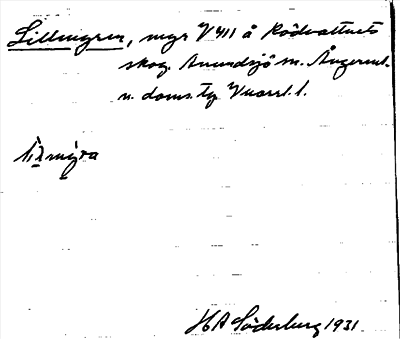 Lillmyren, myr V 411 å Rödvattnets
skog. Anundsjö sn. Ångerml.
n. doms. tg Vnorrl. l.
lìlmýra
HA Söderberg 1931